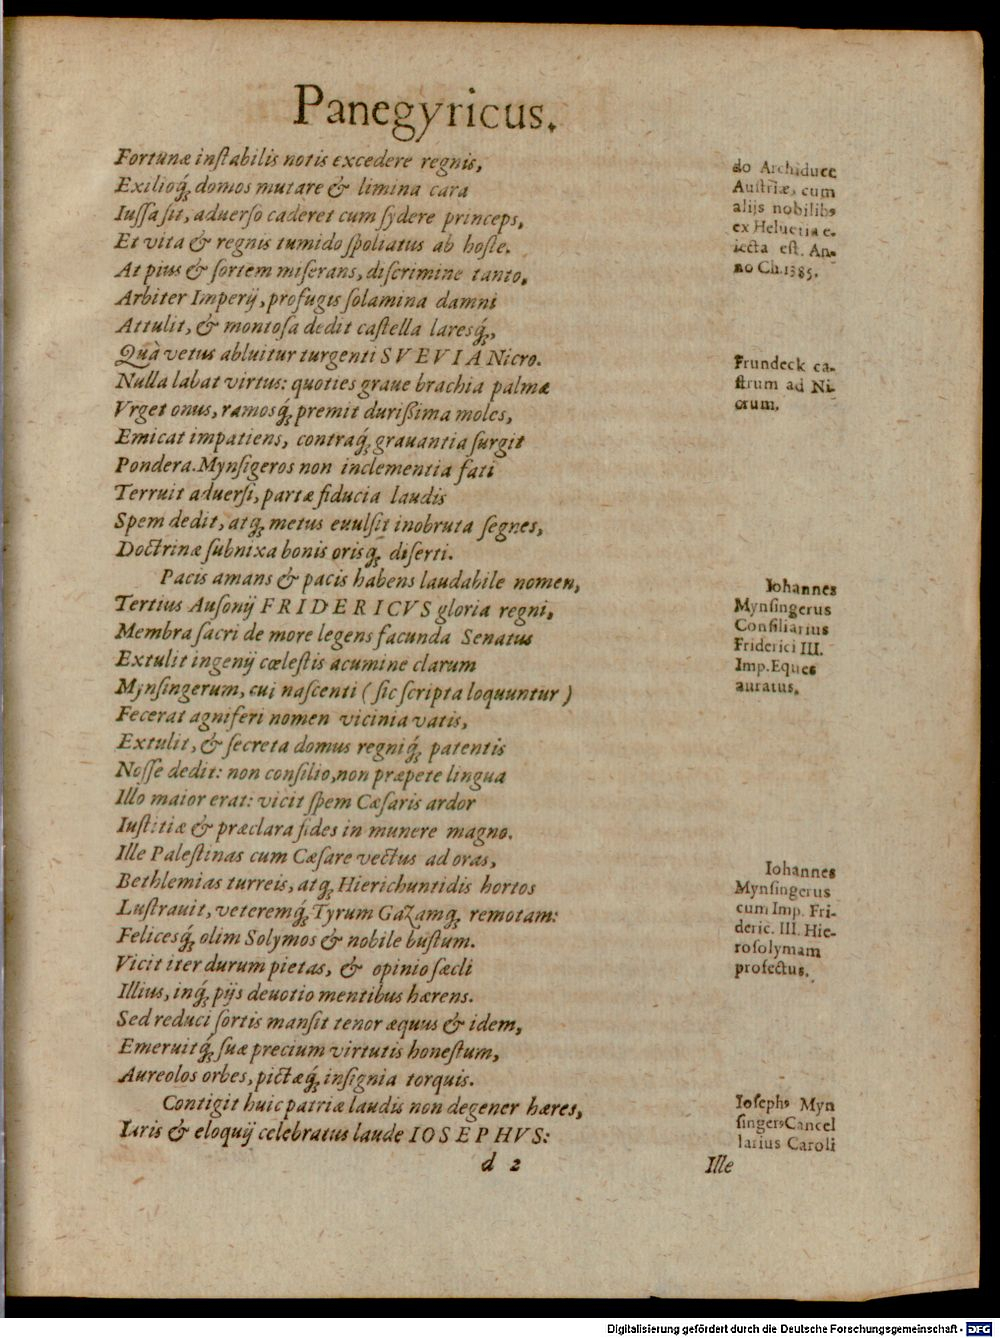 Panegyricus.
Fortunæ inſtabilis notis excedere regnis,
Exilioq́; domos mutare & limina cara
Iuſſa ſit, aduerſo caderet cum ſydere princeps,
Et vita & regnis tumido ſpoliatus ab hoſte.
At pius & ſortem miſerans, diſcrimine tanto,
Arbiter Imperij, profugis ſolamina damni
Attulit, & montoſa dedit caſtella laresq́;,
Quà vetus abluitur turgenti SVEVIA Nicro.
Nulla labat virtus: quoties graue brachia palmæ
Vrget onus, ramosq́; premit durißima moles,
Emicat impatiens, contraq́; grauantia ſurgit
Pondera. Mynſigeros non inclementia fati
Terruit aduerſi, partæ fiducia laudis
Spem dedit, atq; metus euulſit inobruta ſegnes,
Doctrinæ ſubnixa bonis orisq; diſerti.
Pacis amans & pacis habens laudabile nomen,
Tertius Auſonij FRIDERICVS gloria regni,
Membra ſacri de more legens facunda Senatus
Extulit ingenij cœleſtis acumine clarum
Mynſingerum, cui naſcenti (ſic ſcripta loquuntur)
Fecerat agniferi nomen vicinia vatis,
Extulit, & ſecreta domus regniq́; patentis
Noſſe dedit: non conſilio, non præpete lingua
Illo maior erat: vicit ſpem Cæſaris ardor
Iuſtitiæ & præclara fides in munere magno.
Ille Paleſtinas cum Cæſare vectus ad oras,
Bethlemias turreis, atq; Hierichuntidis hortos
Luſtrauit, veteremq́; Tyrum Gazamq; remotam:
Felicesq́; olim Solymos & nobile buſtum.
Vicit iter durum pietas, & opinio ſæcli
Illius, inq́; pijs deuotio mentibus hærens.
Sed reduci ſortis manſit tenor æquus & idem,
Emeruitq́; ſuæ precium virtutis honeſtum,
Aureolos orbes, pictæq́; inſignia torquis.
Contigit huic patriæ laudis non degener hæres,
Iuris & eloquij celebratus laude IOSEPHVS:
d 2
Ille
do Archiduce
Auſtriæ, cum
alijs nobilibꝰ
ex Heluetia e-
iecta eſt. An-
no Ch. 1385.
Frundeck ca-
ſtrum ad Ni-
crum.
Iohannes
Mynſingerus
Conſiliarius
Friderici III.
Imp. Eques
auratus.
Iohannes
Mynſingerus
cum Imp. Fri-
deric. III. Hie-
roſolymam
profectus.
Ioſephꝰ Myn
ſingerꝰ Cancel
larius Caroli
Digitalisierung gefördert durch die Deutsche Forschungsgemeinschaft - DFG